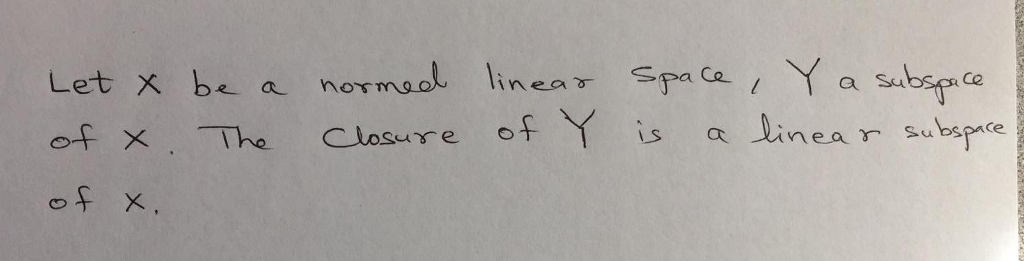 Let X be a normed linear space, Y a subspace
of X. The Closure of Y is a linear subspace
of X.